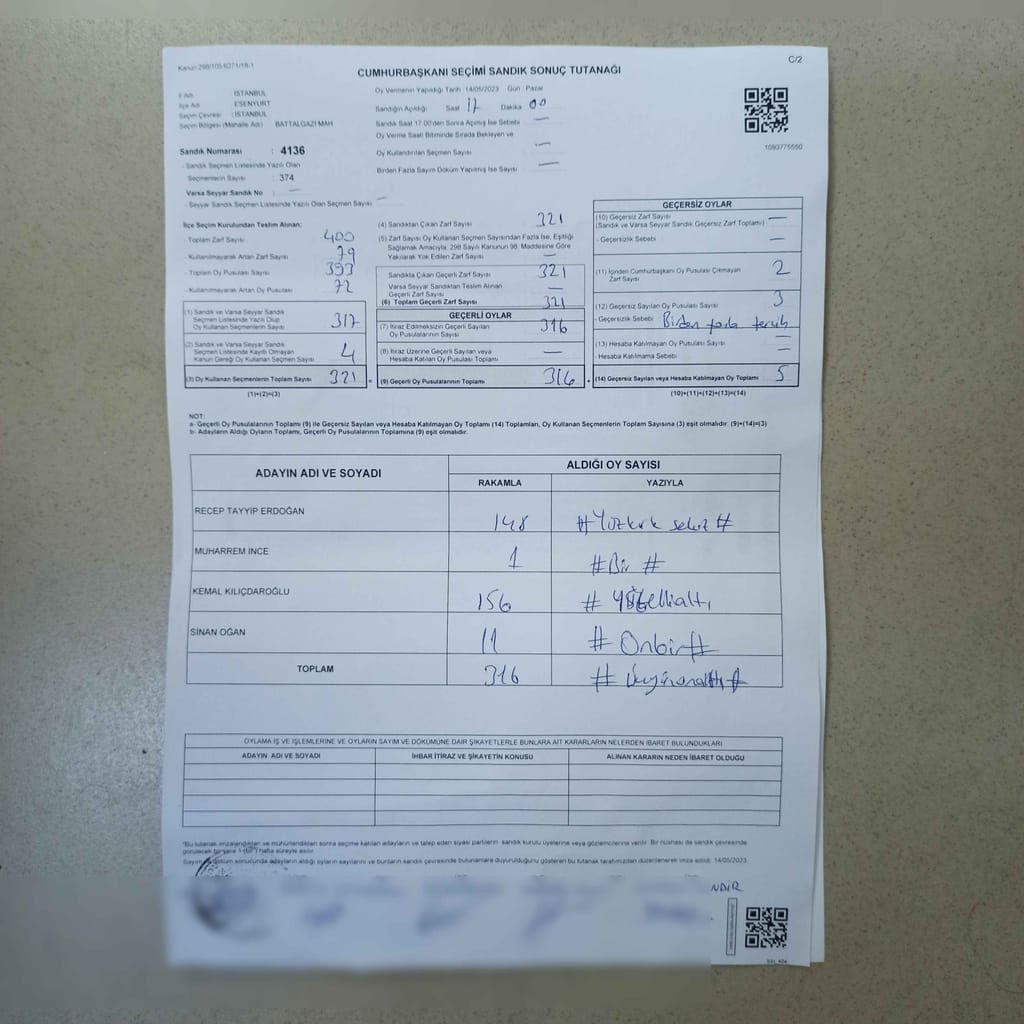 Kanun 298/105 6271/18-1
C/2
CUMHURBAŞKANI SEÇİMİ SANDIK SONUÇ TUTANAĞI
İl Adı : İSTANBUL
İlçe Adı : ESENYURT
Seçim Çevresi : İSTANBUL
Seçim Bölgesi (Mahalle Adı) : BATTALGAZİ MAH.
Sandık Numarası : 4136
- Sandık Seçmen Listesinde Yazılı Olan
Seçmenlerin Sayısı : 374
Varsa Seyyar Sandık No : —
- Seyyar Sandık Seçmen Listesinde Yazılı Olan Seçmen Sayısı : —
Oy Vermenin Yapıldığı Tarih : 14/05/2023 Gün : Pazar
Sandığın Açıldığı Saat 17 Dakika 00
Sandık Saat 17.00'den Sonra Açılmış İse Sebebi —
Oy Verme Saati Bitiminde Sırada Bekleyen ve
Oy Kullandırılan Seçmen Sayısı —
Birden Fazla Sayım Döküm Yapılmış İse Sayısı —
1093775550
İlçe Seçim Kurulundan Teslim Alınan;
- Toplam Zarf Sayısı 400
- Kullanılmayarak Artan Zarf Sayısı 79
- Toplam Oy Pusulası Sayısı 393
- Kullanılmayarak Artan Oy Pusulası 72
(1) Sandık ve Varsa Seyyar Sandık
Seçmen Listesinde Yazılı Olup
Oy Kullanan Seçmenlerin Sayısı 317
(2) Sandık ve Varsa Seyyar Sandık
Seçmen Listesinde Kayıtlı Olmayan
Kanun Gereği Oy Kullanan Seçmen Sayısı 4
(3) Oy Kullanan Seçmenlerin Toplam Sayısı 321
(1)+(2)=(3)
(4) Sandıktan Çıkan Zarf Sayısı 321
(5) Zarf Sayısı Oy Kullanan Seçmen Sayısından Fazla İse, Eşitliği
Sağlamak Amacıyla; 298 Sayılı Kanunun 98. Maddesine Göre
Yakılarak Yok Edilen Zarf Sayısı —
Sandıkta Çıkan Geçerli Zarf Sayısı 321
Varsa Seyyar Sandıktan Teslim Alınan
Geçerli Zarf Sayısı —
(6) Toplam Geçerli Zarf Sayısı 321
GEÇERLİ OYLAR
(7) İtiraz Edilmeksizin Geçerli Sayılan
Oy Pusulasının Sayısı 316
(8) İtiraz Üzerine Geçerli Sayılan veya
Hesaba Katılan Oy Pusulası Toplamı —
(9) Geçerli Oy Pusulalarının Toplamı 316
GEÇERSİZ OYLAR
(10) Geçersiz Zarf Sayısı
(Sandık ve Varsa Seyyar Sandık Geçersiz Zarf Toplamı) —
- Geçersizlik Sebebi —
(11) İçinden Cumhurbaşkanı Oy Pusulası Çıkmayan
Zarf Sayısı 2
(12) Geçersiz Sayılan Oy Pusulası Sayısı 3
- Geçersizlik Sebebi Birden fazla tercih
(13) Hesaba Katılmayan Oy Pusulası Sayısı —
- Hesaba Katılmama Sebebi —
(14) Geçersiz Sayılan veya Hesaba Katılmayan Oy Toplamı 5
(10)+(11)+(12)+(13)=(14)
NOT:
a- Geçerli Oy Pusulalarının Toplamı (9) ile Geçersiz Sayılan veya Hesaba Katılmayan Oy Toplamı (14) Toplamları, Oy Kullanan Seçmenlerin Toplam Sayısına (3) eşit olmalıdır. (9)+(14)=(3)
b- Adayların Aldığı Oyların Toplamı, Geçerli Oy Pusulalarının Toplamına (9) eşit olmalıdır.
ADAYIN ADI VE SOYADI
ALDIĞI OY SAYISI
RAKAMLA YAZIYLA
RECEP TAYYİP ERDOĞAN 148 #Yüzkırk sekiz#
MUHARREM İNCE 1 #Bir #
KEMAL KILIÇDAROĞLU 156 # Yüzellialtı
SİNAN OĞAN 11 # Onbir#
TOPLAM 316 # Üçyüzonaltı #
OYLAMA İŞ VE İŞLEMLERİNE VE OYLARIN SAYIM VE DÖKÜMÜNE DAİR ŞİKAYETLERLE BUNLARA AİT KARARLARIN NELERDEN İBARET BULUNDUKLARI
ADAYIN ADI VE SOYADI İHBAR İTİRAZ VE ŞİKAYETİN KONUSU ALINAN KARARIN NEDEN İBARET OLDUĞU
"Bu tutanak imzalandıktan ve mühürlendikten sonra seçime katılan adayların ve talep eden siyasi partilerin sandık kurulu üyelerine veya gözlemcilerine verilir. Bir nüshası da sandık çevresinde
görülecek bir yere 1 (bir) hafta süreyle asılır.
Sayım ve döküm sonucunda adayların aldığı oyların sayılarını ve bunların sandık çevresinde bulunanlara duyurulduğunu gösteren bu tutanak tarafımızdan düzenlenerek imza edildi. 14/05/2023